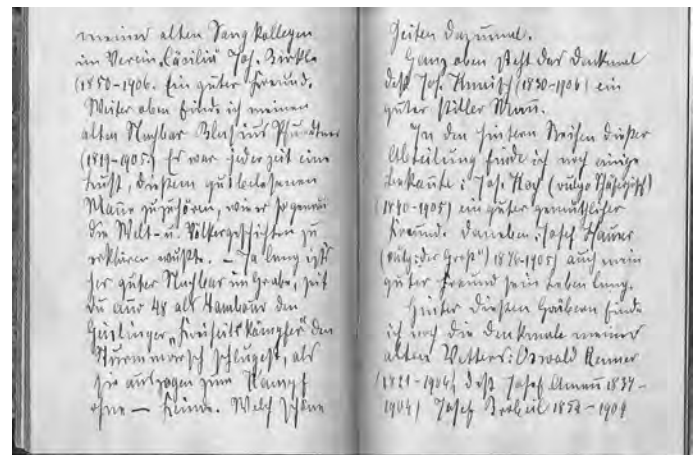 meiner alten Sangkollegen
im Verein „Cäcilia" Jos. Birkle
(1850-1906. Ein guter Freund.
Weiter oben finde ich meinen
alten Nachbar Blasius
(1819-1905.) Er war jederzeit eine
Lust, diesem gutbelesenen
Manne zuzuhören, wie er so genau
die Welt- u. Völkergeschichten zu
erklären wußte. – Ja lang ists
her guter Nachbar im Grabe, seit
du anno 48 als Tambour den
Geislinger „Freiheitskämpfer" den
Sturmmarsch schlugest, als
sie auszogen zum Kampf
ohne — Feinde. Welch schöne
Zeiten dazumal.
Ganz oben steht das Denkmal
des Jos. (1830-1906) ein
guter stiller Mann.
In den hintern Reihen dieser
Abteilung finde ich noch einige
Bekannte: Jos. Koch (vulgo
(1840-1905) ein guter gemütlicher
Freund. Daneben: Josef Hauser
(vulg: der Groß") 1826-1905) auch mein
guter Freund sein Leben lang.
Hinter diesen Gräbern finde
ich noch die Denkmale meines
alten Vetters: Oswald Renner
(1821-1904) des Josef Amann 1837-
1904) Josef 1852-1904